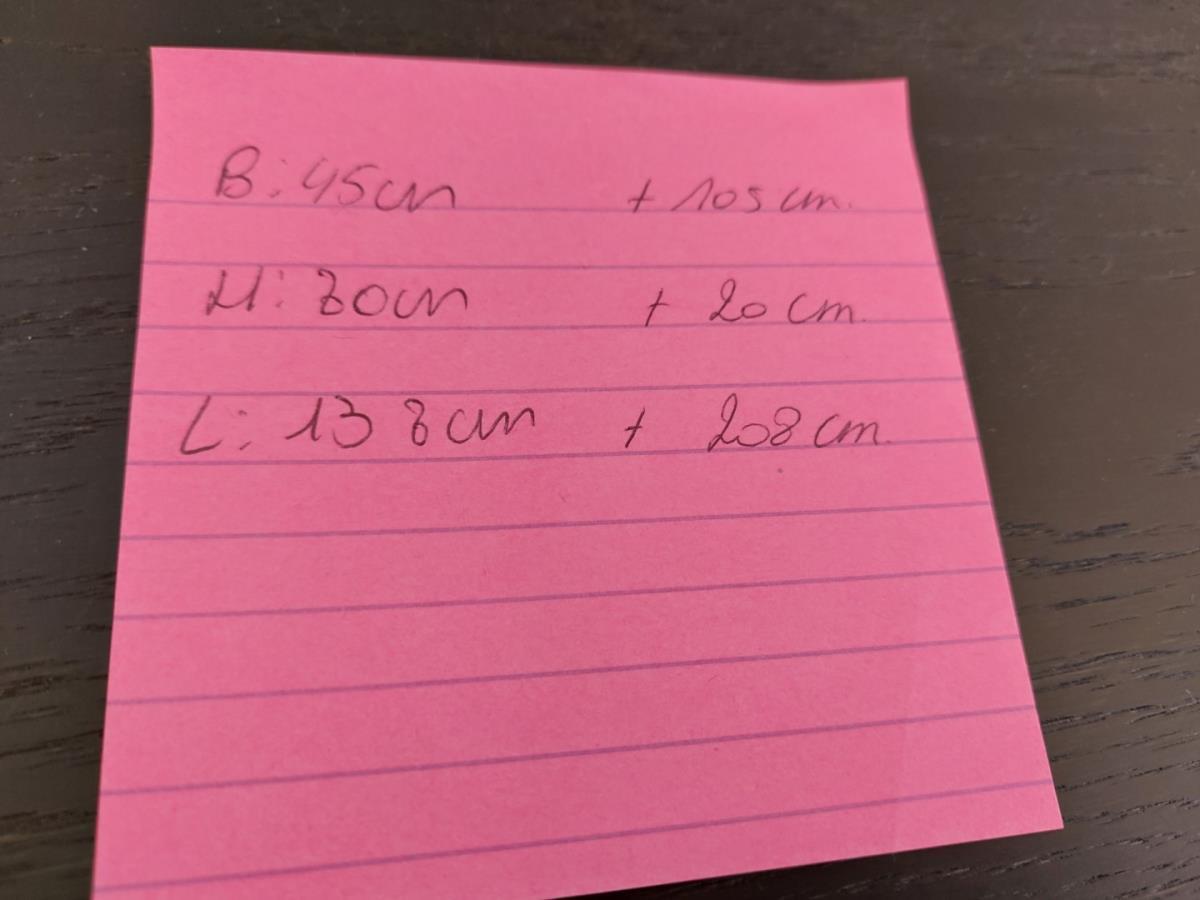 B: 45cm + 105 cm.
H: 80cm + 20 cm.
L: 138cm + 208 cm.